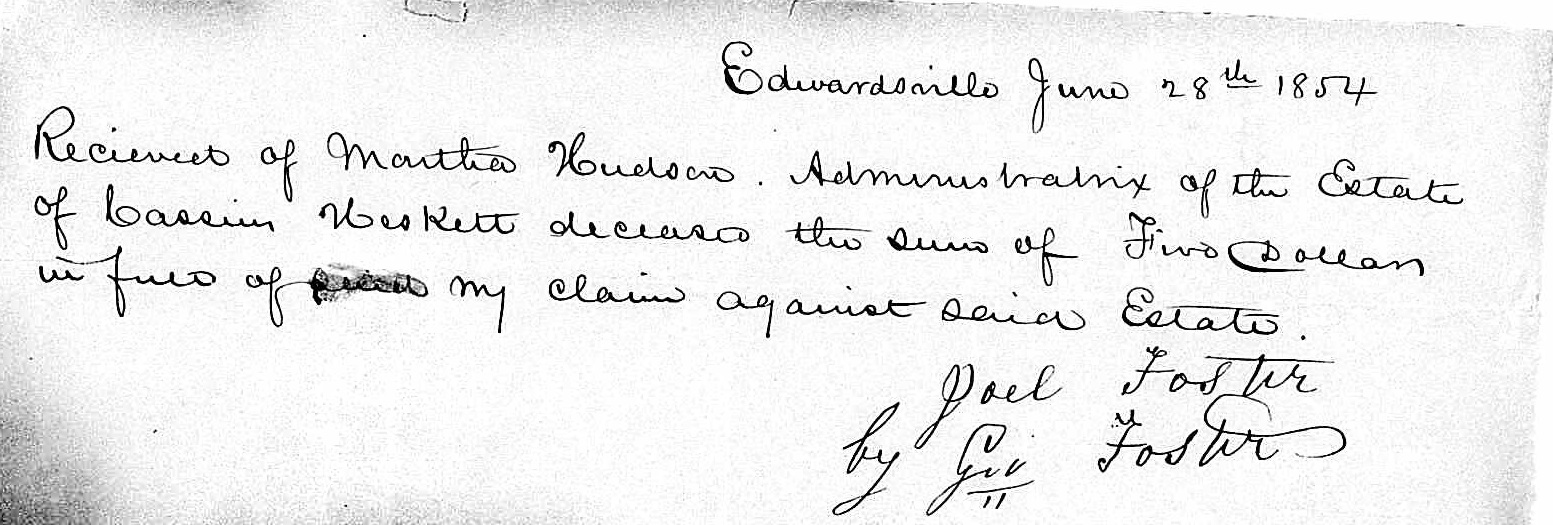 Edwardsville June 28th 1854
Recieved of Martha Hudson. Administratrix of the Estate
of Heskett deceased the sum of Five Dollars
in full of my claim against said Estate.
Joel Foster
by Foster